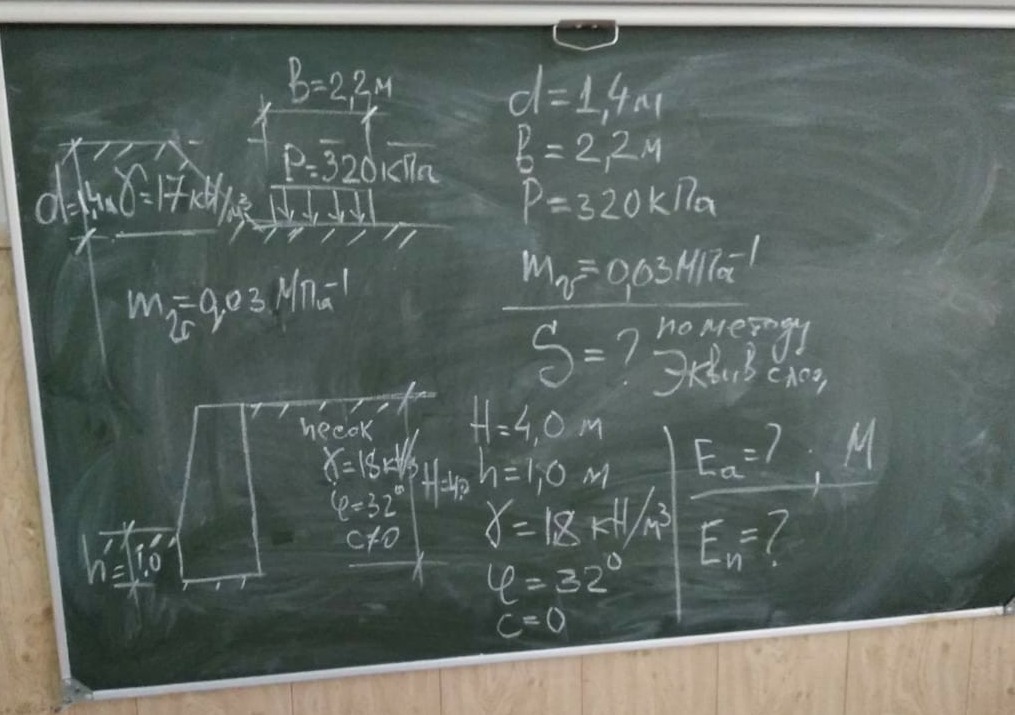 в=2,2м
P=320кПа
d=1,4м
γ=17кН/м³
m_v=0,03 МПа⁻¹
d=1,4м
в=2,2м
P=320кПа
m_v=0,03МПа⁻¹
S=? по методу
Эквив слоя,
песок
γ=18кН/м³
φ=32°
c=0
H=4,0
h=1,0
H=4,0 м
h=1,0 м
γ=18 кН/м³
φ=32°
c=0
Eа=? М
Eп=?